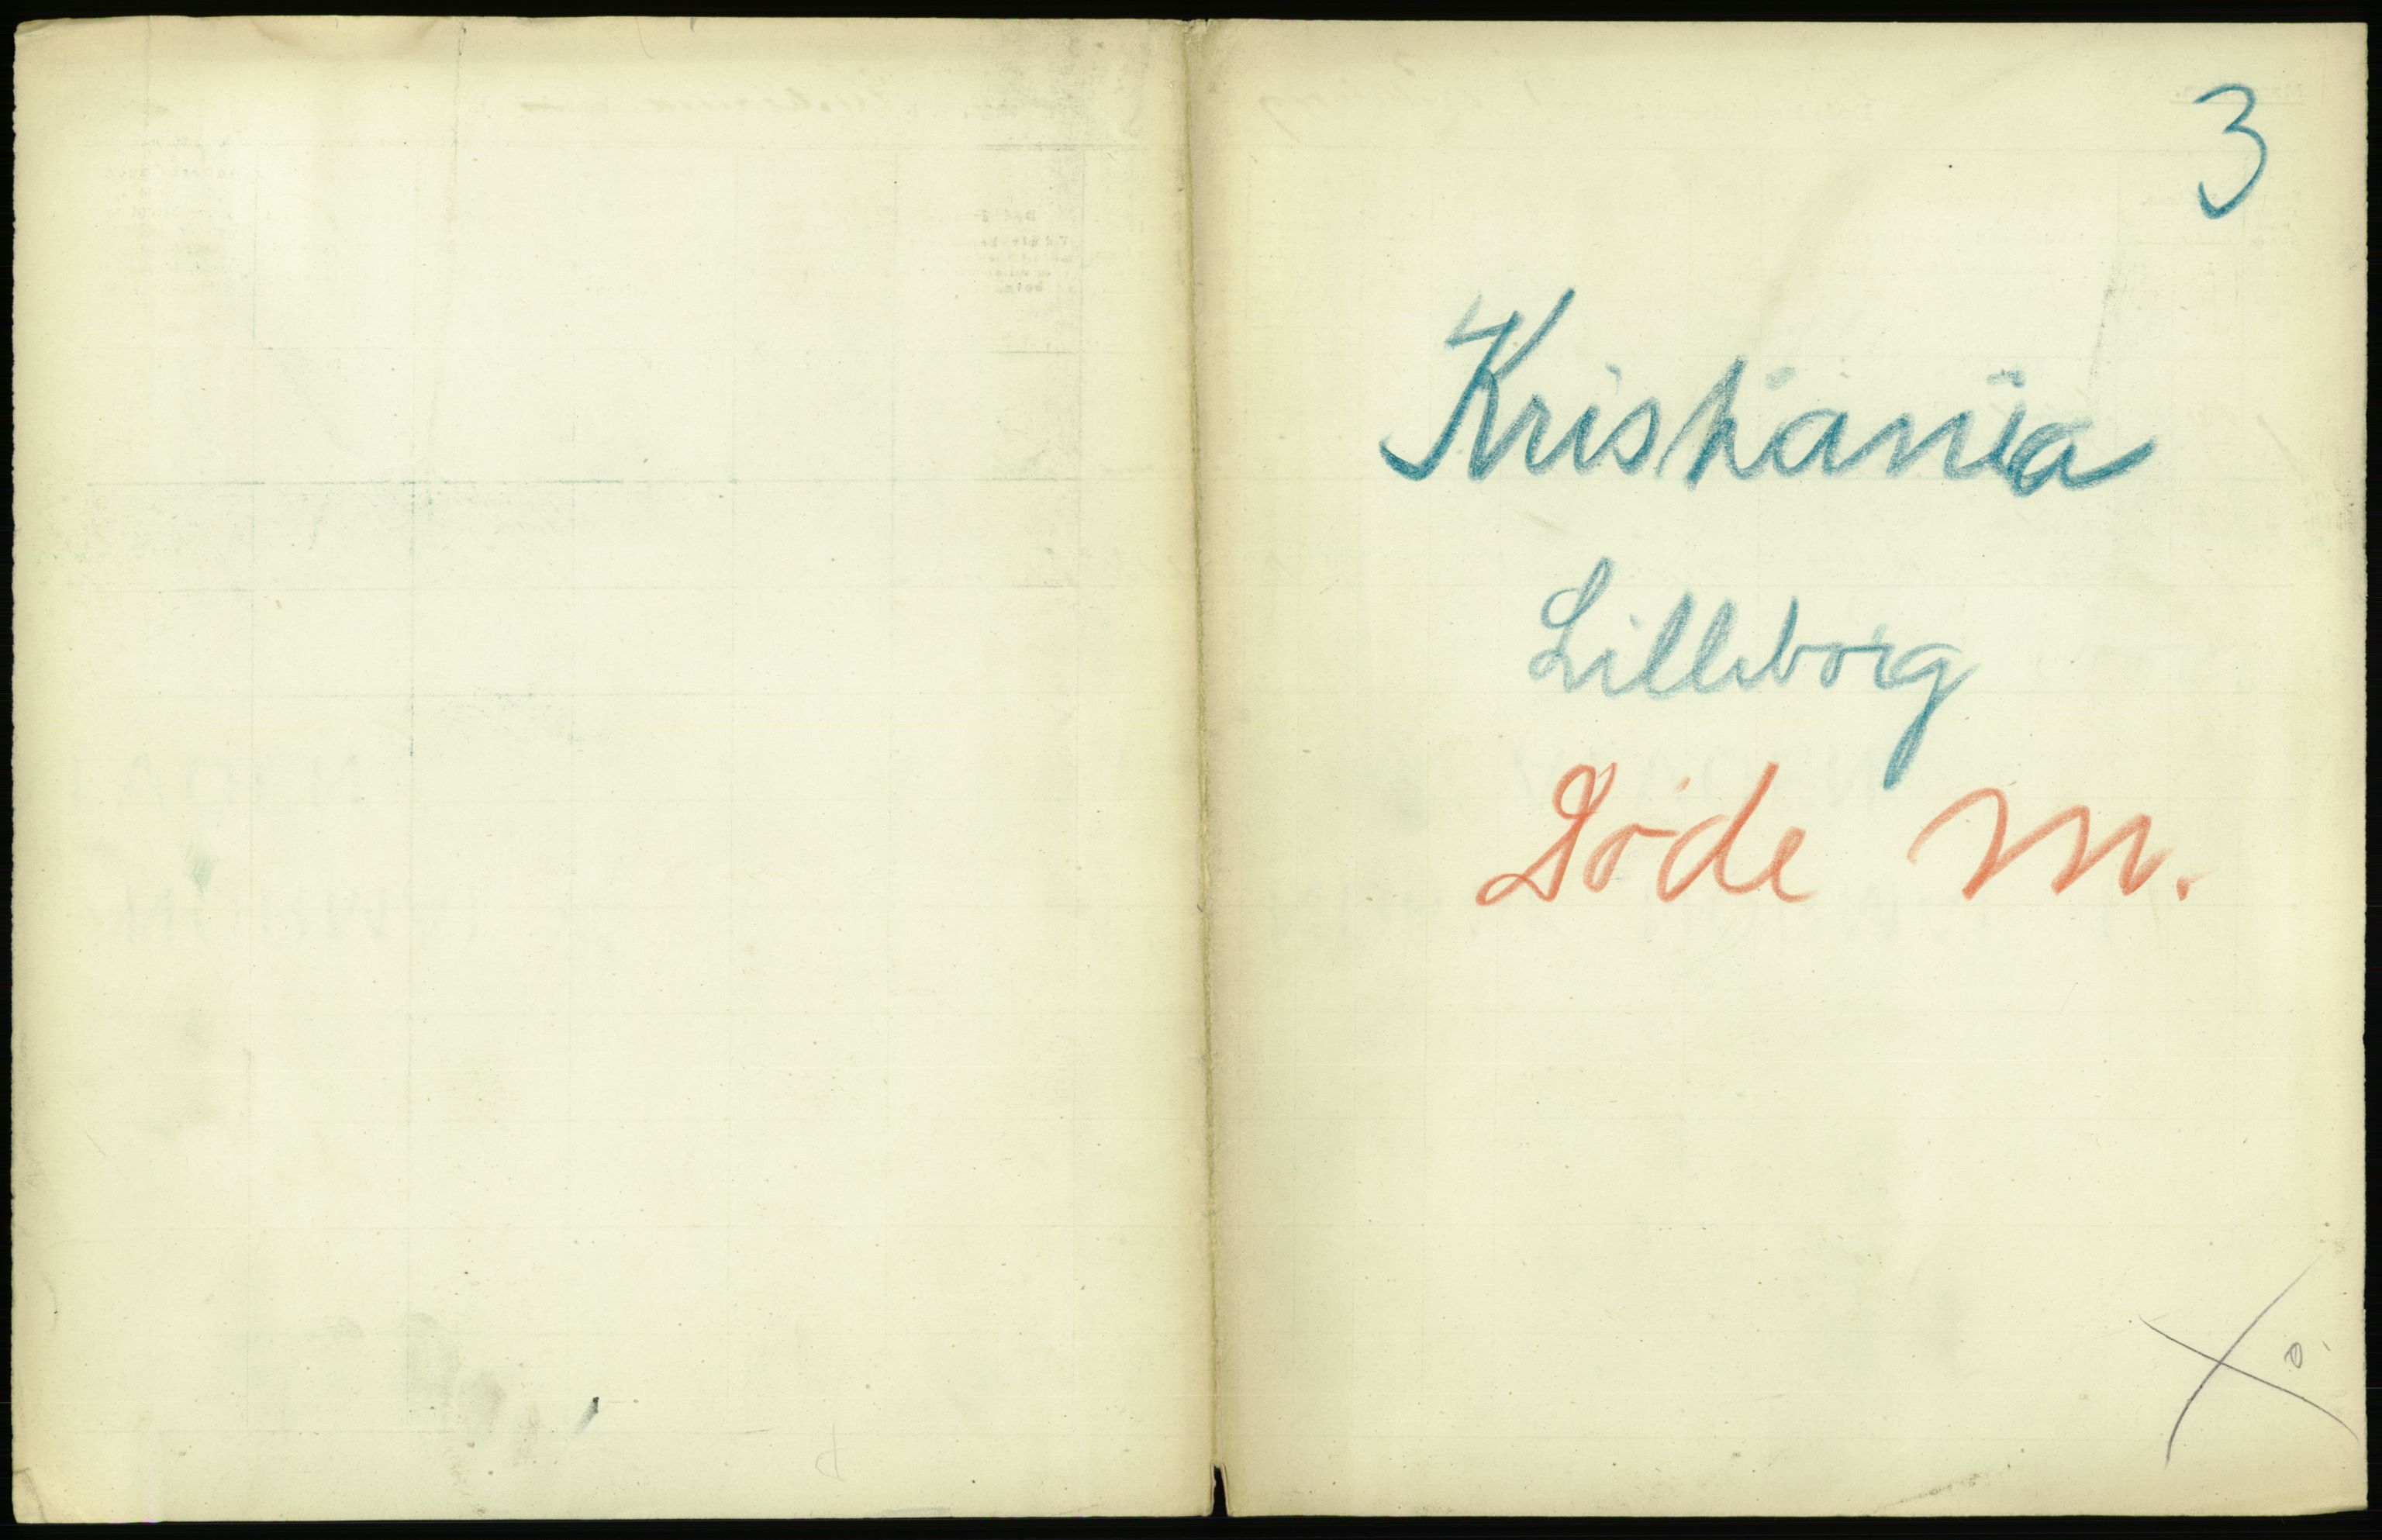 3
Kristiania
Lilleborg
Døde M.